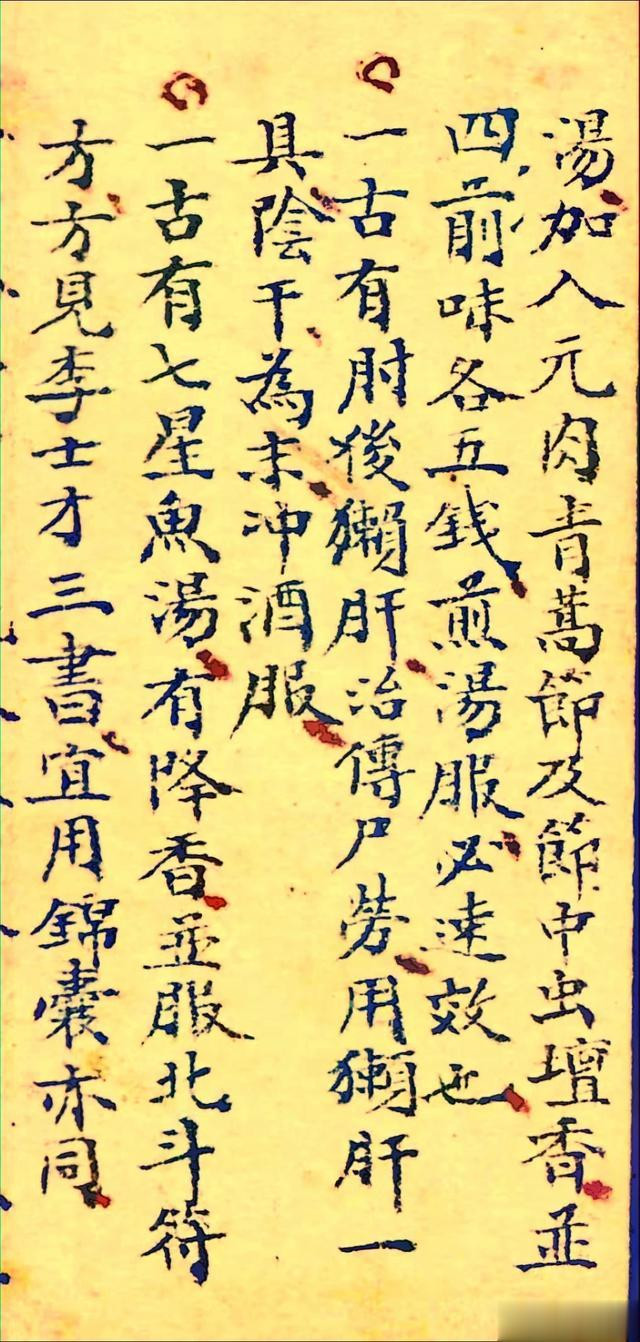 湯加入元肉青蒿節及節中虫壇香並
四前味各五錢煎湯服必速效也
一古有肘後獺肝治傳尸勞用獺肝一
具陰干為末冲酒服
一古有七星魚湯有降香並服北斗符
方方見李士才三書宜用錦囊亦同